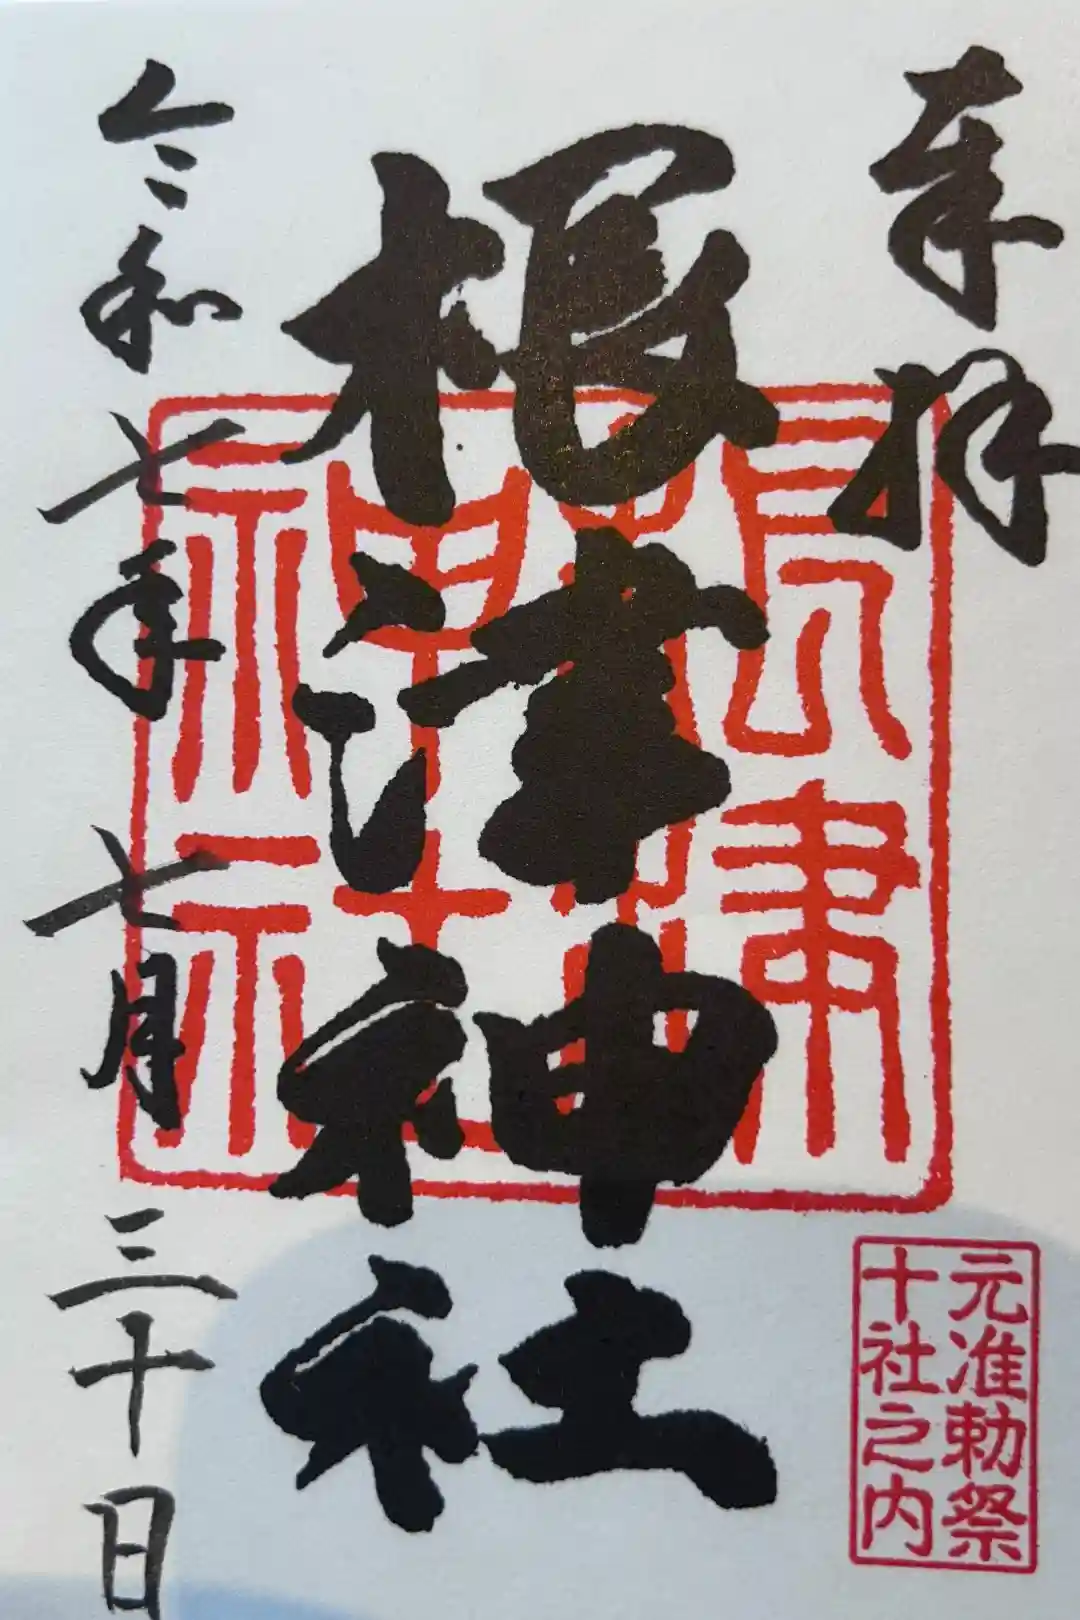 奉拝
根津神社
令和七年七月三十日
元准勅祭
十社之内